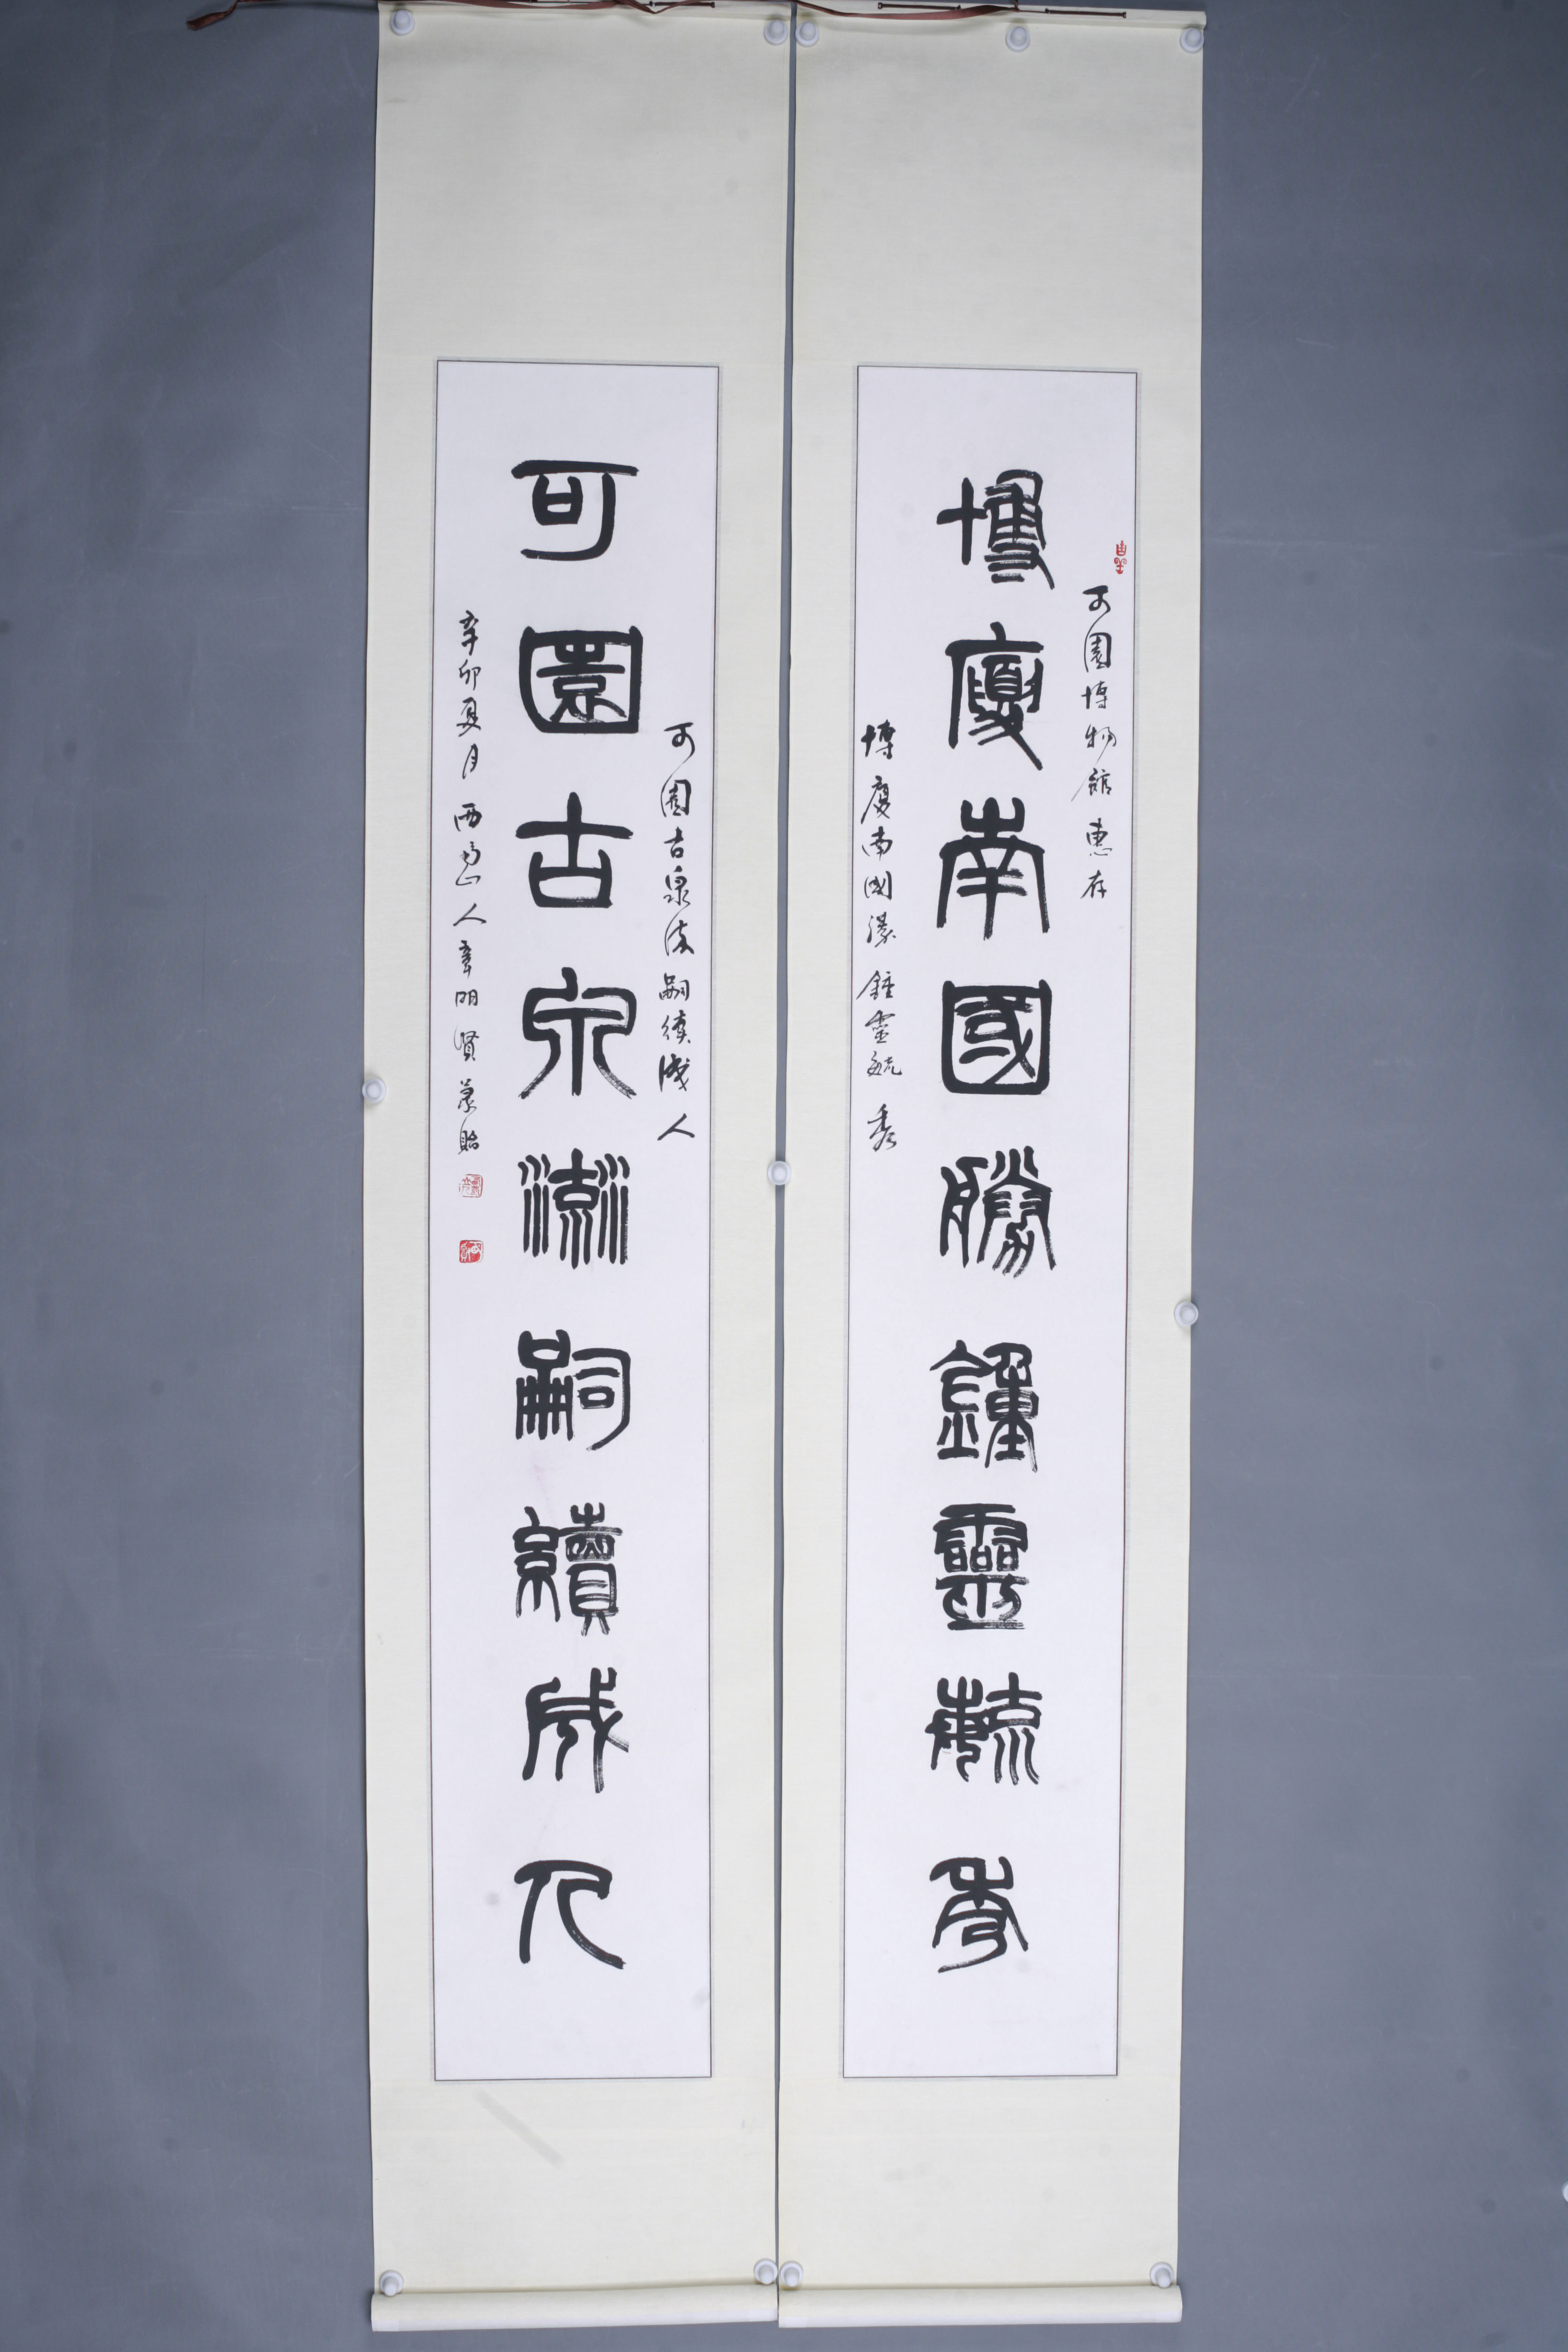 可園博物館惠存
博廈南國勝鍾靈毓秀
博廈南國勝鍾靈毓秀
可園古泉流嗣續成人
可園古泉流嗣續成人
辛卯夏月西山人章明賢篆貽